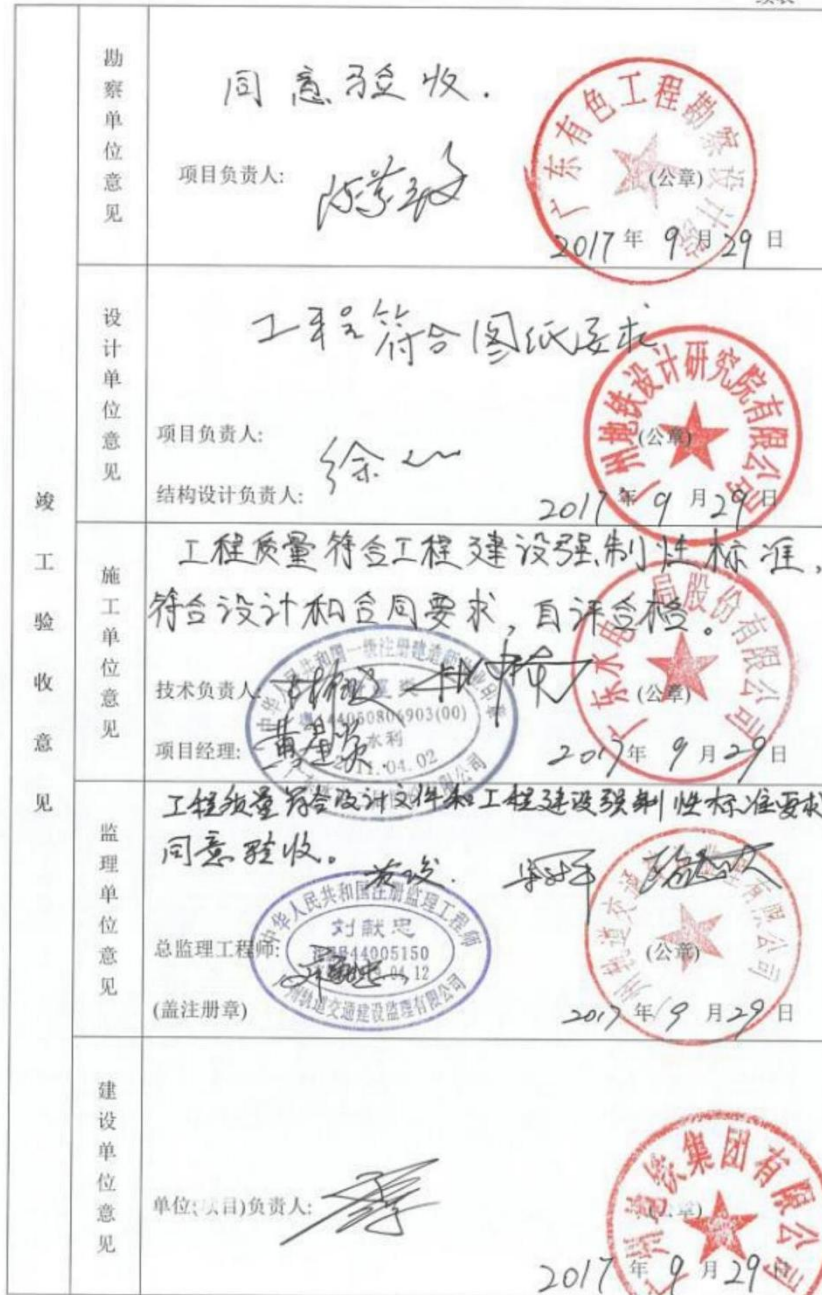 竣工验收意见
勘察单位意见
同意验收.
项目负责人:
广东有色工程勘察设计院
(公章)
2017年9月29日
设计单位意见
工程符合图纸要求
项目负责人:
结构设计负责人:
广州地铁设计研究院有限公司
(公章)
2017年9月29日
施工单位意见
工程质量符合工程建设强制性标准,
符合设计和合同要求,自评合格。
技术负责人:
中华人民共和国一级注册建造师执业印章
44050806903(00)
水利
2011.04.02
项目经理:
广东水电二局股份有限公司
(公章)
2017年9月29日
监理单位意见
工程质量符合设计文件和工程建设强制性标准要求
同意验收。
中华人民共和国注册监理工程师
刘献忠
44005150
广州轨道交通建设监理有限公司
总监理工程师:
(盖注册章)
州轨道交通建设监理有限公司
(公章)
2017年9月29日
建设单位意见
单位(项目)负责人:
广州地铁集团有限公司
(公章)
2017年9月29日